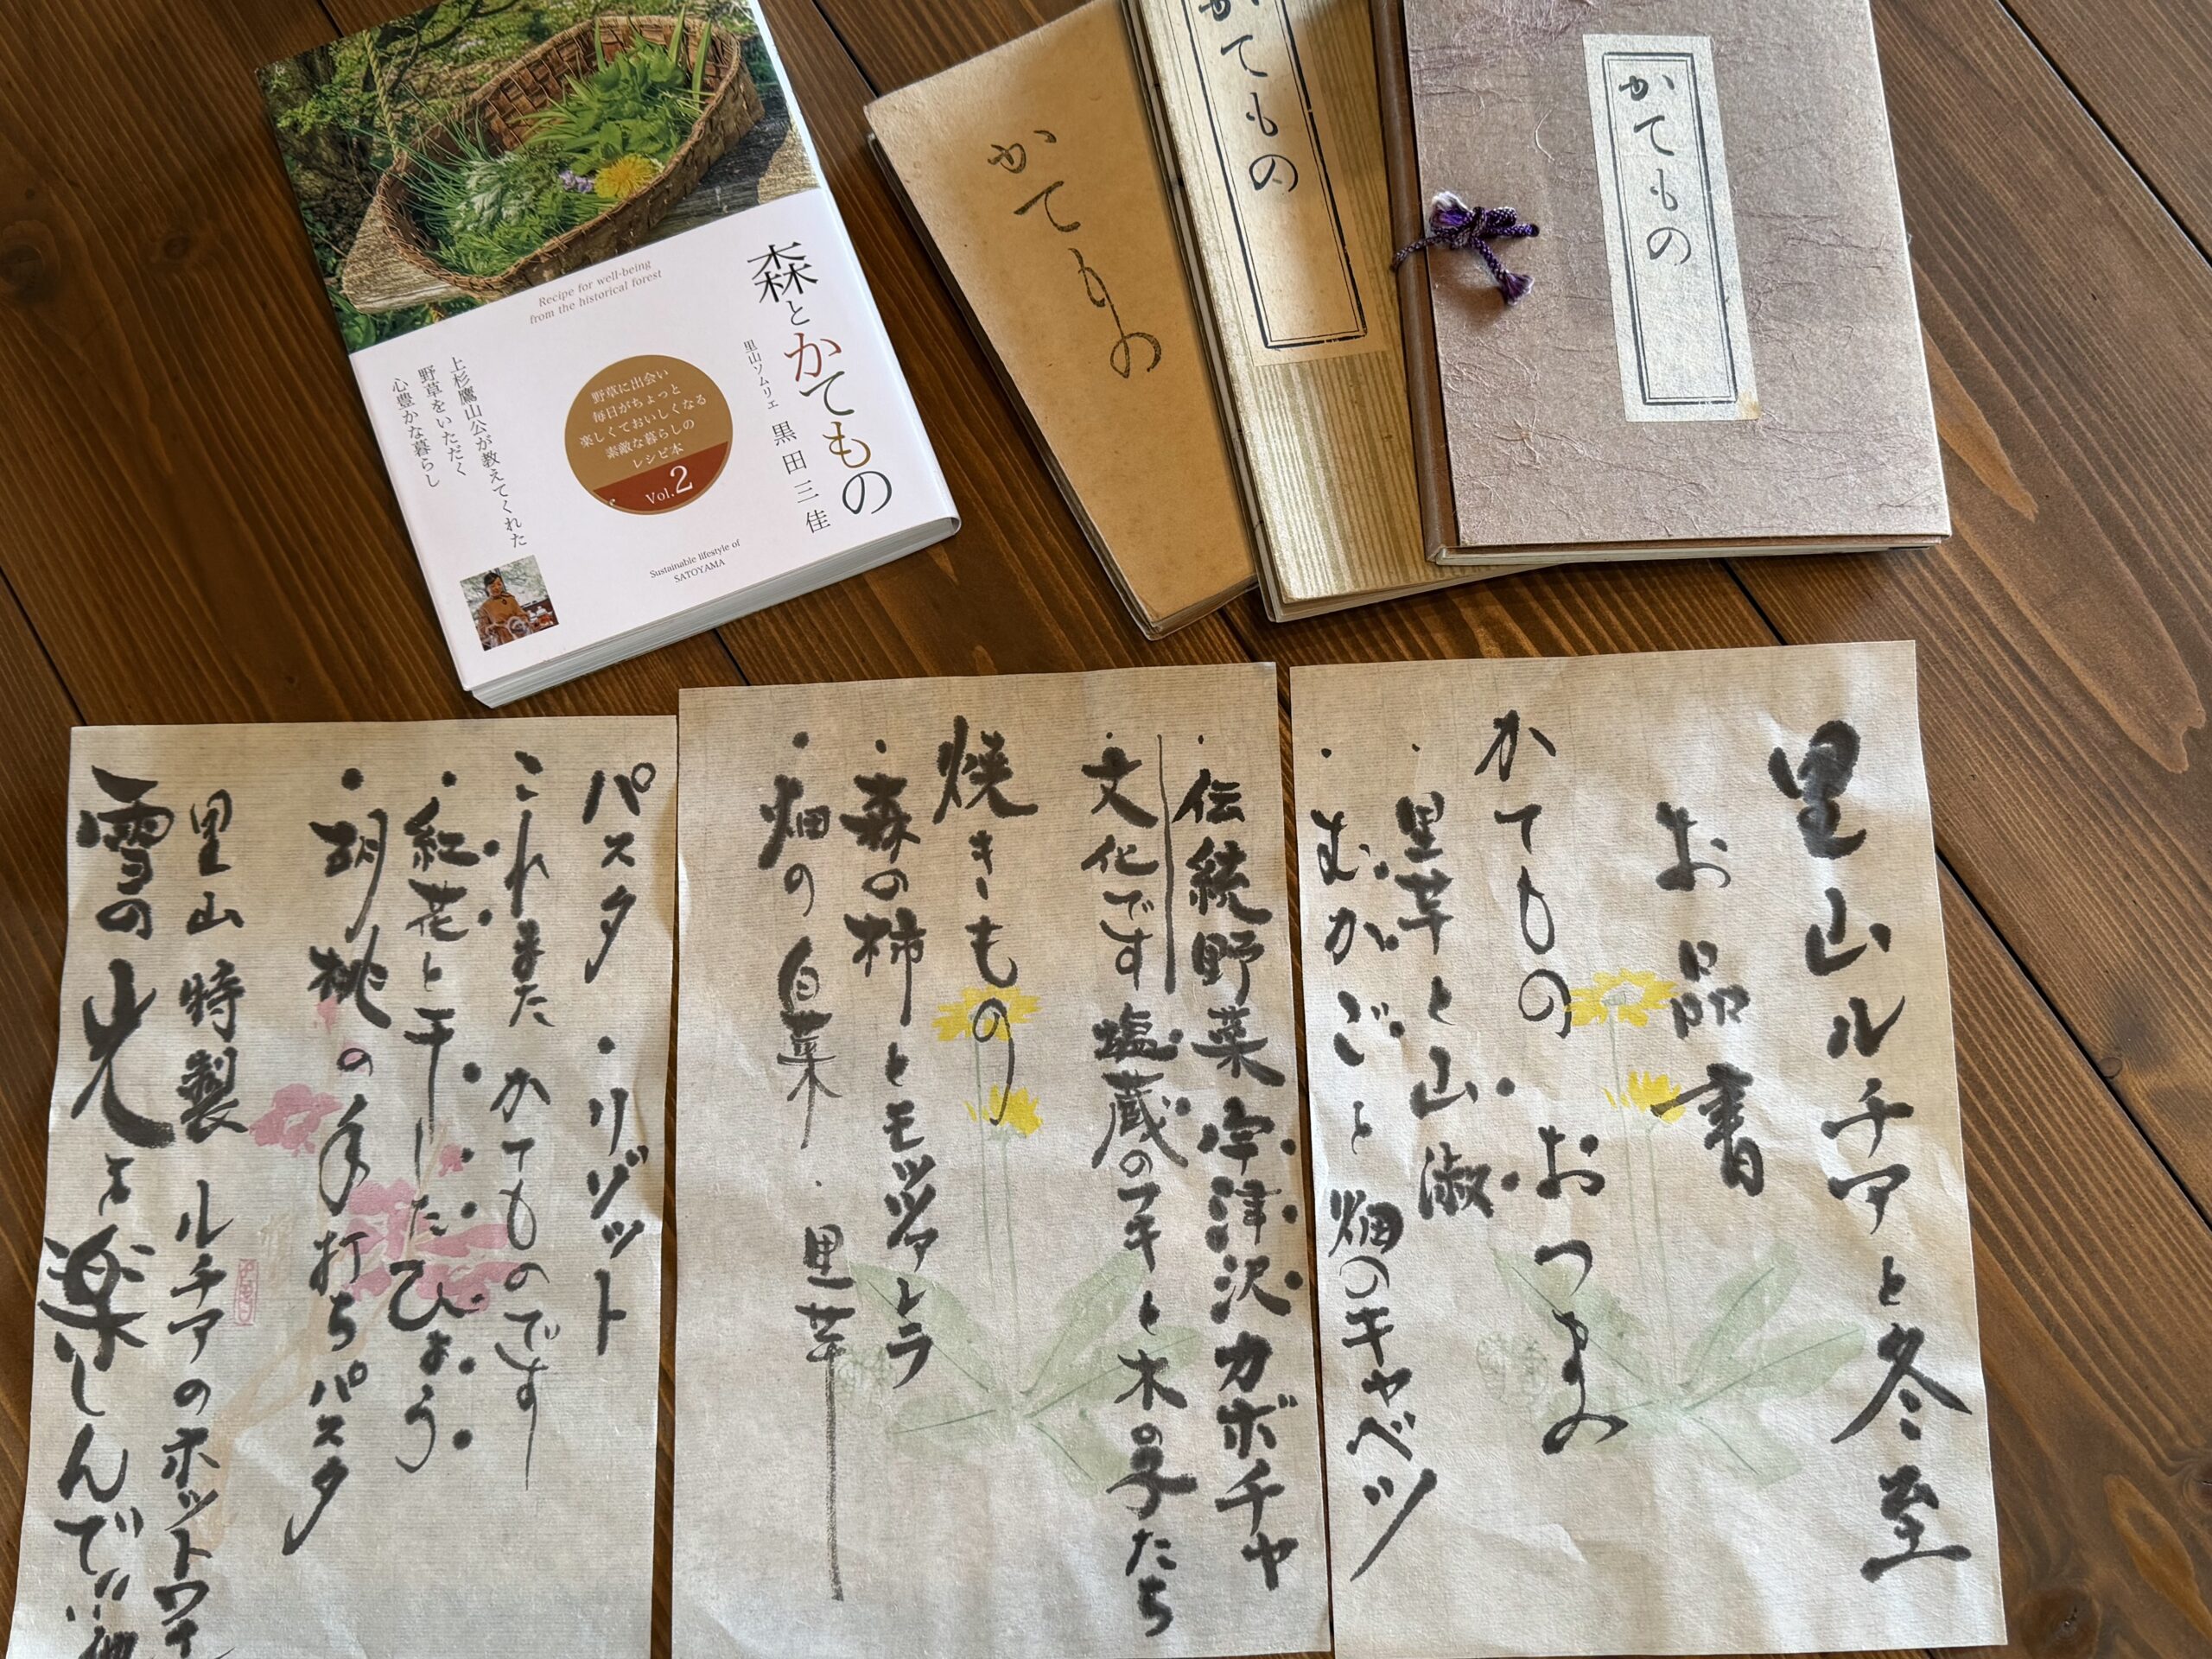 Recipe for well-being
from the historical forest
森とかてもの
里山ソムリエ 黒田三佳
野草に出会い
毎日がちょっと
楽しくておいしくなる
素敵な暮らしの
レシピ本
Vol.2
上杉鷹山公が教えてくれた
野草をいただく
心豊かな暮らし
Sustainable lifestyle of
SATOYAMA
かてもの
かてもの
かてもの
里山ルチアと冬至
お品書
かてもの おつまみ
・里芋と山淑
・むかごと畑のキャベツ
・伝統野菜宇津沢カボチャ
・文化です塩蔵のフキと木の子たち
焼きもの
・森の柿とモッツァレラ
・畑の白菜・里芋
パスタ・リゾット
これまたかてものです
・紅花と干したひょう
・胡桃の手打ちパスタ
里山特製ルチアのホットワイ
雪の光を楽しんで